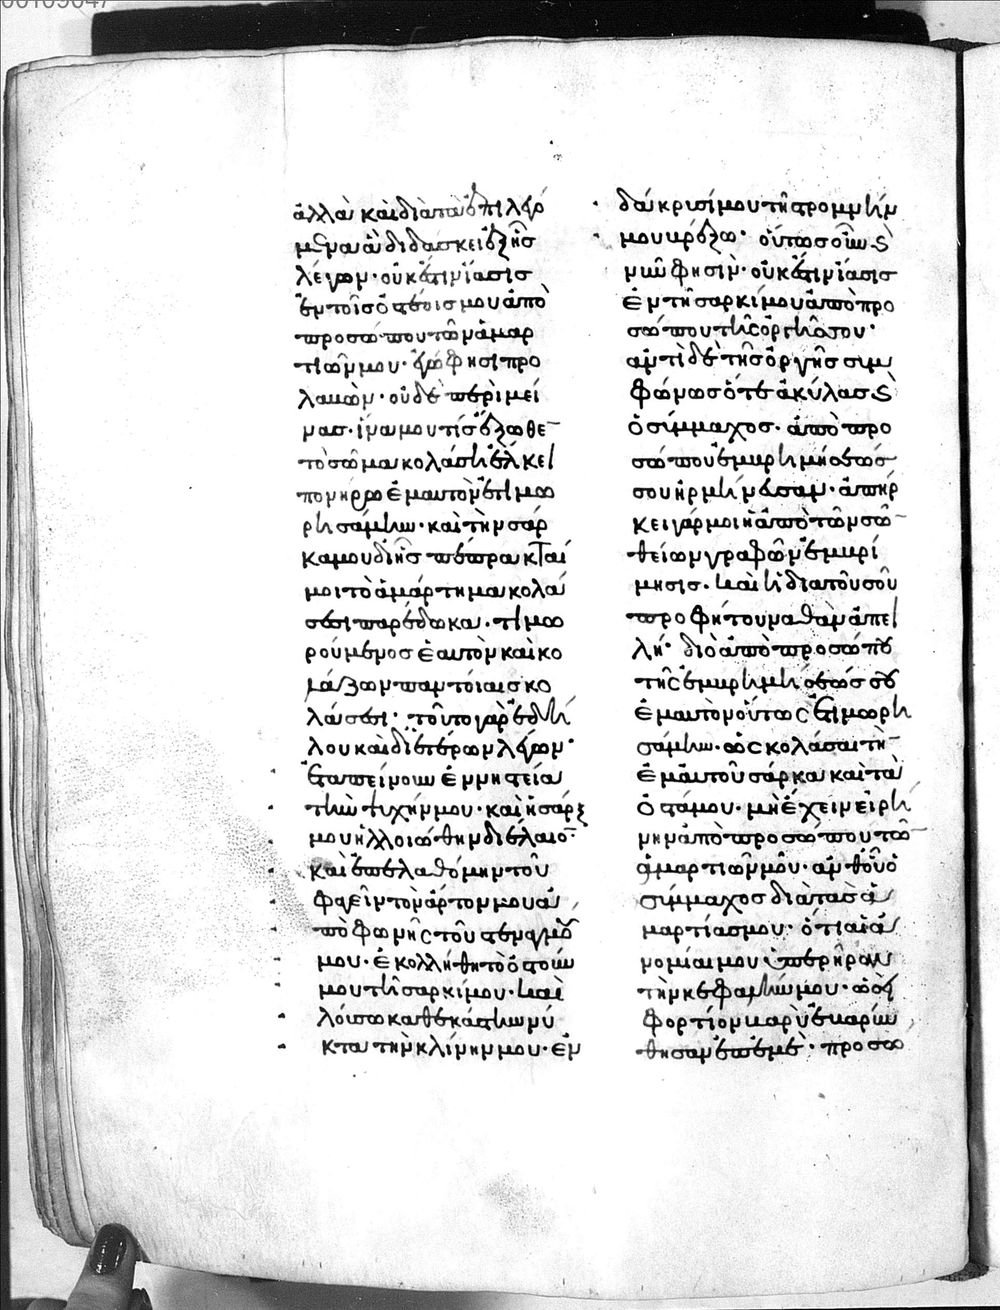 ἀλλὰ καὶ διὰ πασ
λέγων· οὐκ ἔστιν ἴασισ
ἐν τοῖσ ὀστέοισ μου ἀπὸ
προσώπου τῶν ἁμαρ
τιῶν μου· ἐγώ φησι προ
λαβὼν· οὐδὲ περιμεί
νασ· ἵνα μου τισ ἔξωθε
τὸ σῶμα κολάσῃ ἕλκει
πονηρῷ ἐμαυτὸν ἐτιμω
ρησάμην· καὶ τὴν σάρ
κα μου δι' ἧσ πέπρακται
μοι τὸ ἁμάρτημα κολά
σει παρέδωκα· τιμω
ρούμενοσ ἑαυτὸν καὶ κο
λάζων παντοίαισ κο
λάσεσι· τοῦτο γὰρ ἐδήλου
λου καὶ δι' ἑτέρων λέγων·
Ἐταπείνουν ἐν νηστείᾳ
τὴν ψυχήν μου· καὶ ἡ σάρξ
μου ἠλλοιώθην δι' ἔλαιον
καὶ ἐπελαθόμην τοῦ
φαγεῖν τὸν ἄρτον μου ἀ
πὸ φωνῆς τοῦ στεναγμοῦ
μου· ἐκολλήθη τὸ ὀστοῦν
μου τῇ σαρκί μου· καὶ
λούσω καθ' ἑκάστην νύ
κτα τὴν κλίνην μου· ἐν
δάκρυσί μου τὴν στρωμνήν
μου βρέξω· οὕτωσ οὖν καὶ
νῦν φησὶν· οὐκ ἔστιν ἴασισ
ἐν τῇ σαρκί μου ἀπὸ προ
σώπου τῆς ὀργῆς σου·
ἀντὶ δὲ τῆσ ὀργῆσ συμ
φώνωσ ὅτε ἀκύλασ καὶ
ὁ σύμμαχοσ· ἀπὸ προ
σώπου ἐμβριμήσεώσ
σου ἡρμήνευσαν· ἀπήρ
κει γάρ μοι ἡ ἀπὸ τῶν σῶν
θείων γραφῶν ἐμβρί
μησισ· καὶ ἡ διὰ τοῦ σοῦ
προφήτου ναθὰν ἀπει
λή· διὸ ἀπὸ προσώπου
τῆς ἐμβριμήσεώσ σου
ἐμαυτὸν οὕτως ἐτιμωρη
σάμην· ὡς κολάσαι τὴν
ἐμαυτοῦ σάρκα καὶ τὰ
ὀστᾶ μου· μὴ ἔχειν εἰρή
νην ἀπὸ προσώπου τῶν
ἁμαρτιῶν μου· ἀνθ' οὗ ὁ
σύμμαχοσ διὰ τὰσ ἁ
μαρτίασ μου· ὅτι αἱ ἀ
νομίαι μου ὑπερῆραν
τὴν κεφαλήν μου· ὡσεὶ
φορτίον βαρὺ ἐβαρύν
θησαν ἐπ' ἐμέ· προσώ